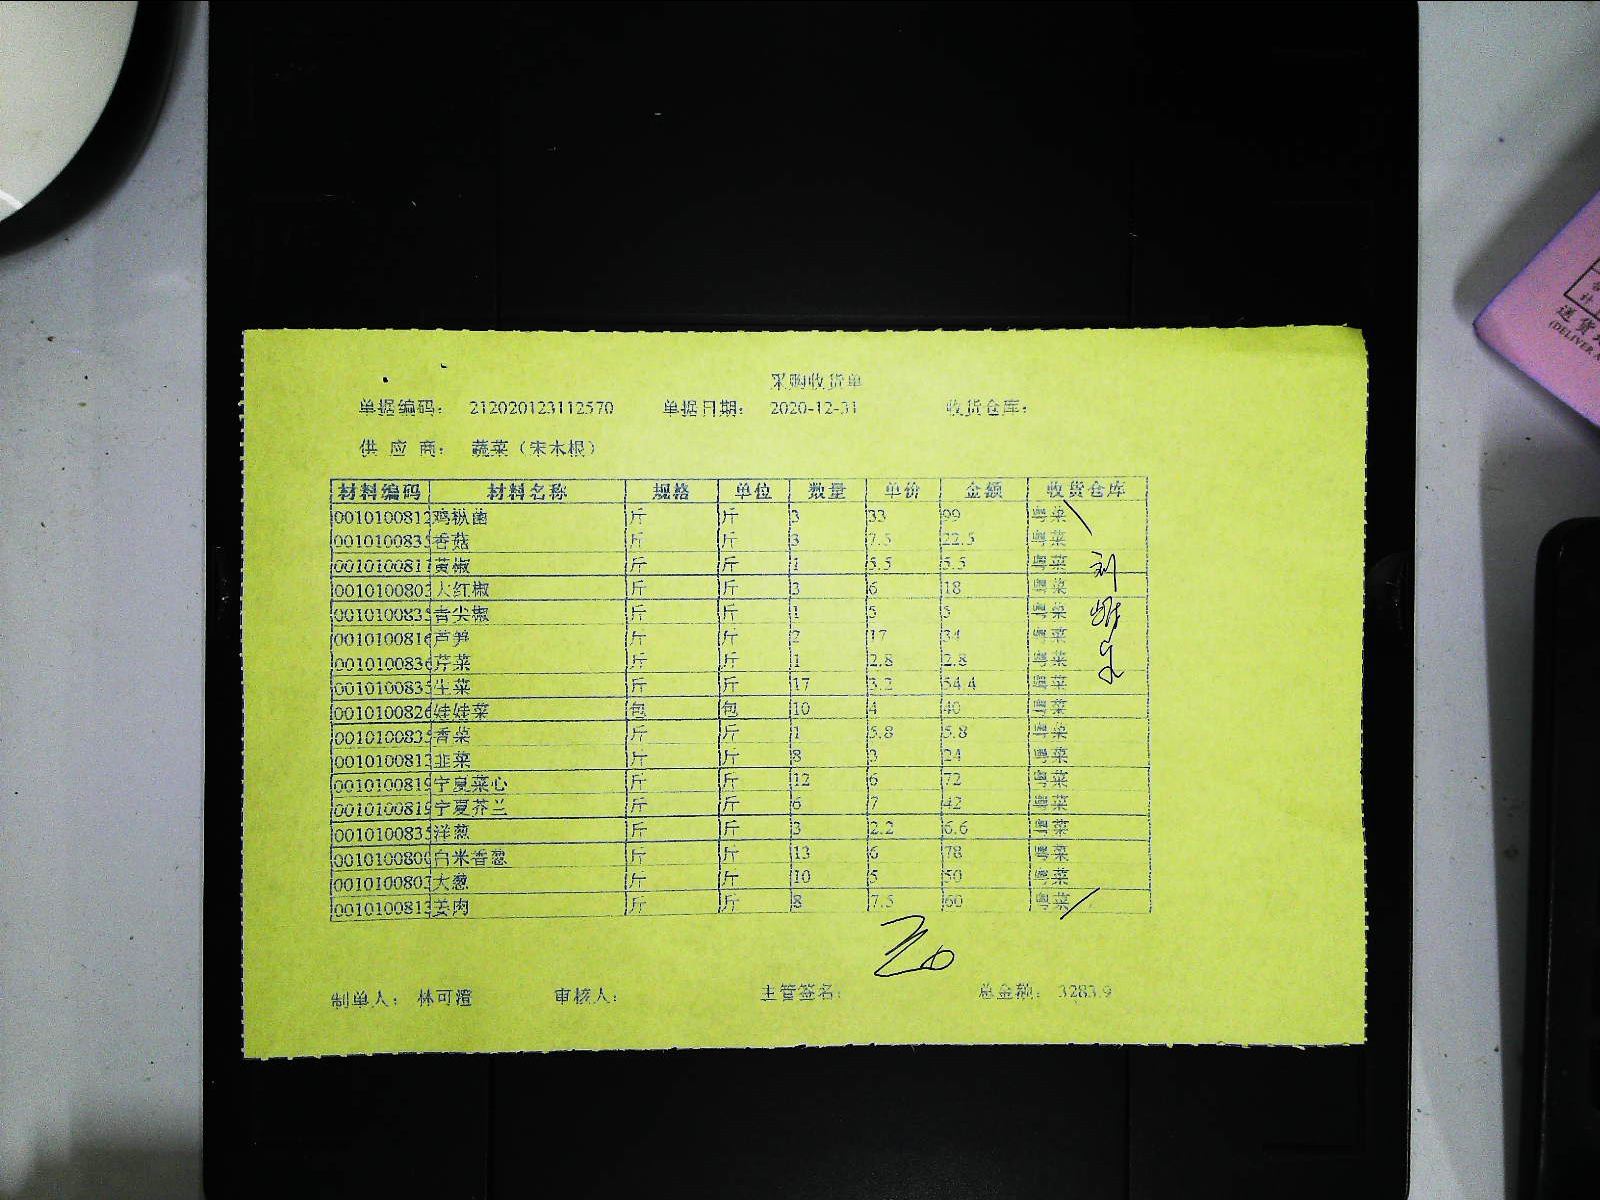 采购收货单
单据编码： 212020123112570 单据日期： 2020-12-31 收货仓库：
供 应 商： 蔬菜（宋木根）
材料编码 材料名称 规格 单位 数量 单价 金额 收货仓库
0010100812 鸡枞菌 斤 斤 3 33 99 粤菜
001010083 香菇 斤 斤 3 7.5 22.5 粤菜
001010081 黄椒 斤 斤 1 5.5 5.5 粤菜
001010080 大红椒 斤 斤 3 6 18 粤菜
001010083 青尖椒 斤 斤 1 5 5 粤菜
001010081 芦笋 斤 斤 2 17 34 粤菜
001010083 芹菜 斤 斤 1 2.8 2.8 粤菜
001010083 生菜 斤 斤 17 3.2 54.4 粤菜
001010082 娃娃菜 包 包 10 4 40 粤菜
001010083 香菜 斤 斤 1 5.8 5.8 粤菜
001010081 韭菜 斤 斤 8 3 24 粤菜
001010081 宁夏菜心 斤 斤 12 6 72 粤菜
001010081 宁夏芥兰 斤 斤 6 7 42 粤菜
001010083 洋葱 斤 斤 3 2.2 6.6 粤菜
001010080 白米香葱 斤 斤 13 6 78 粤菜
001010080 大葱 斤 斤 10 5 50 粤菜
001010081 姜肉 斤 斤 8 7.5 60 粤菜
制单人： 林可澄 审核人： 主管签名： 总金额： 3283.9
送货
(DELIVER